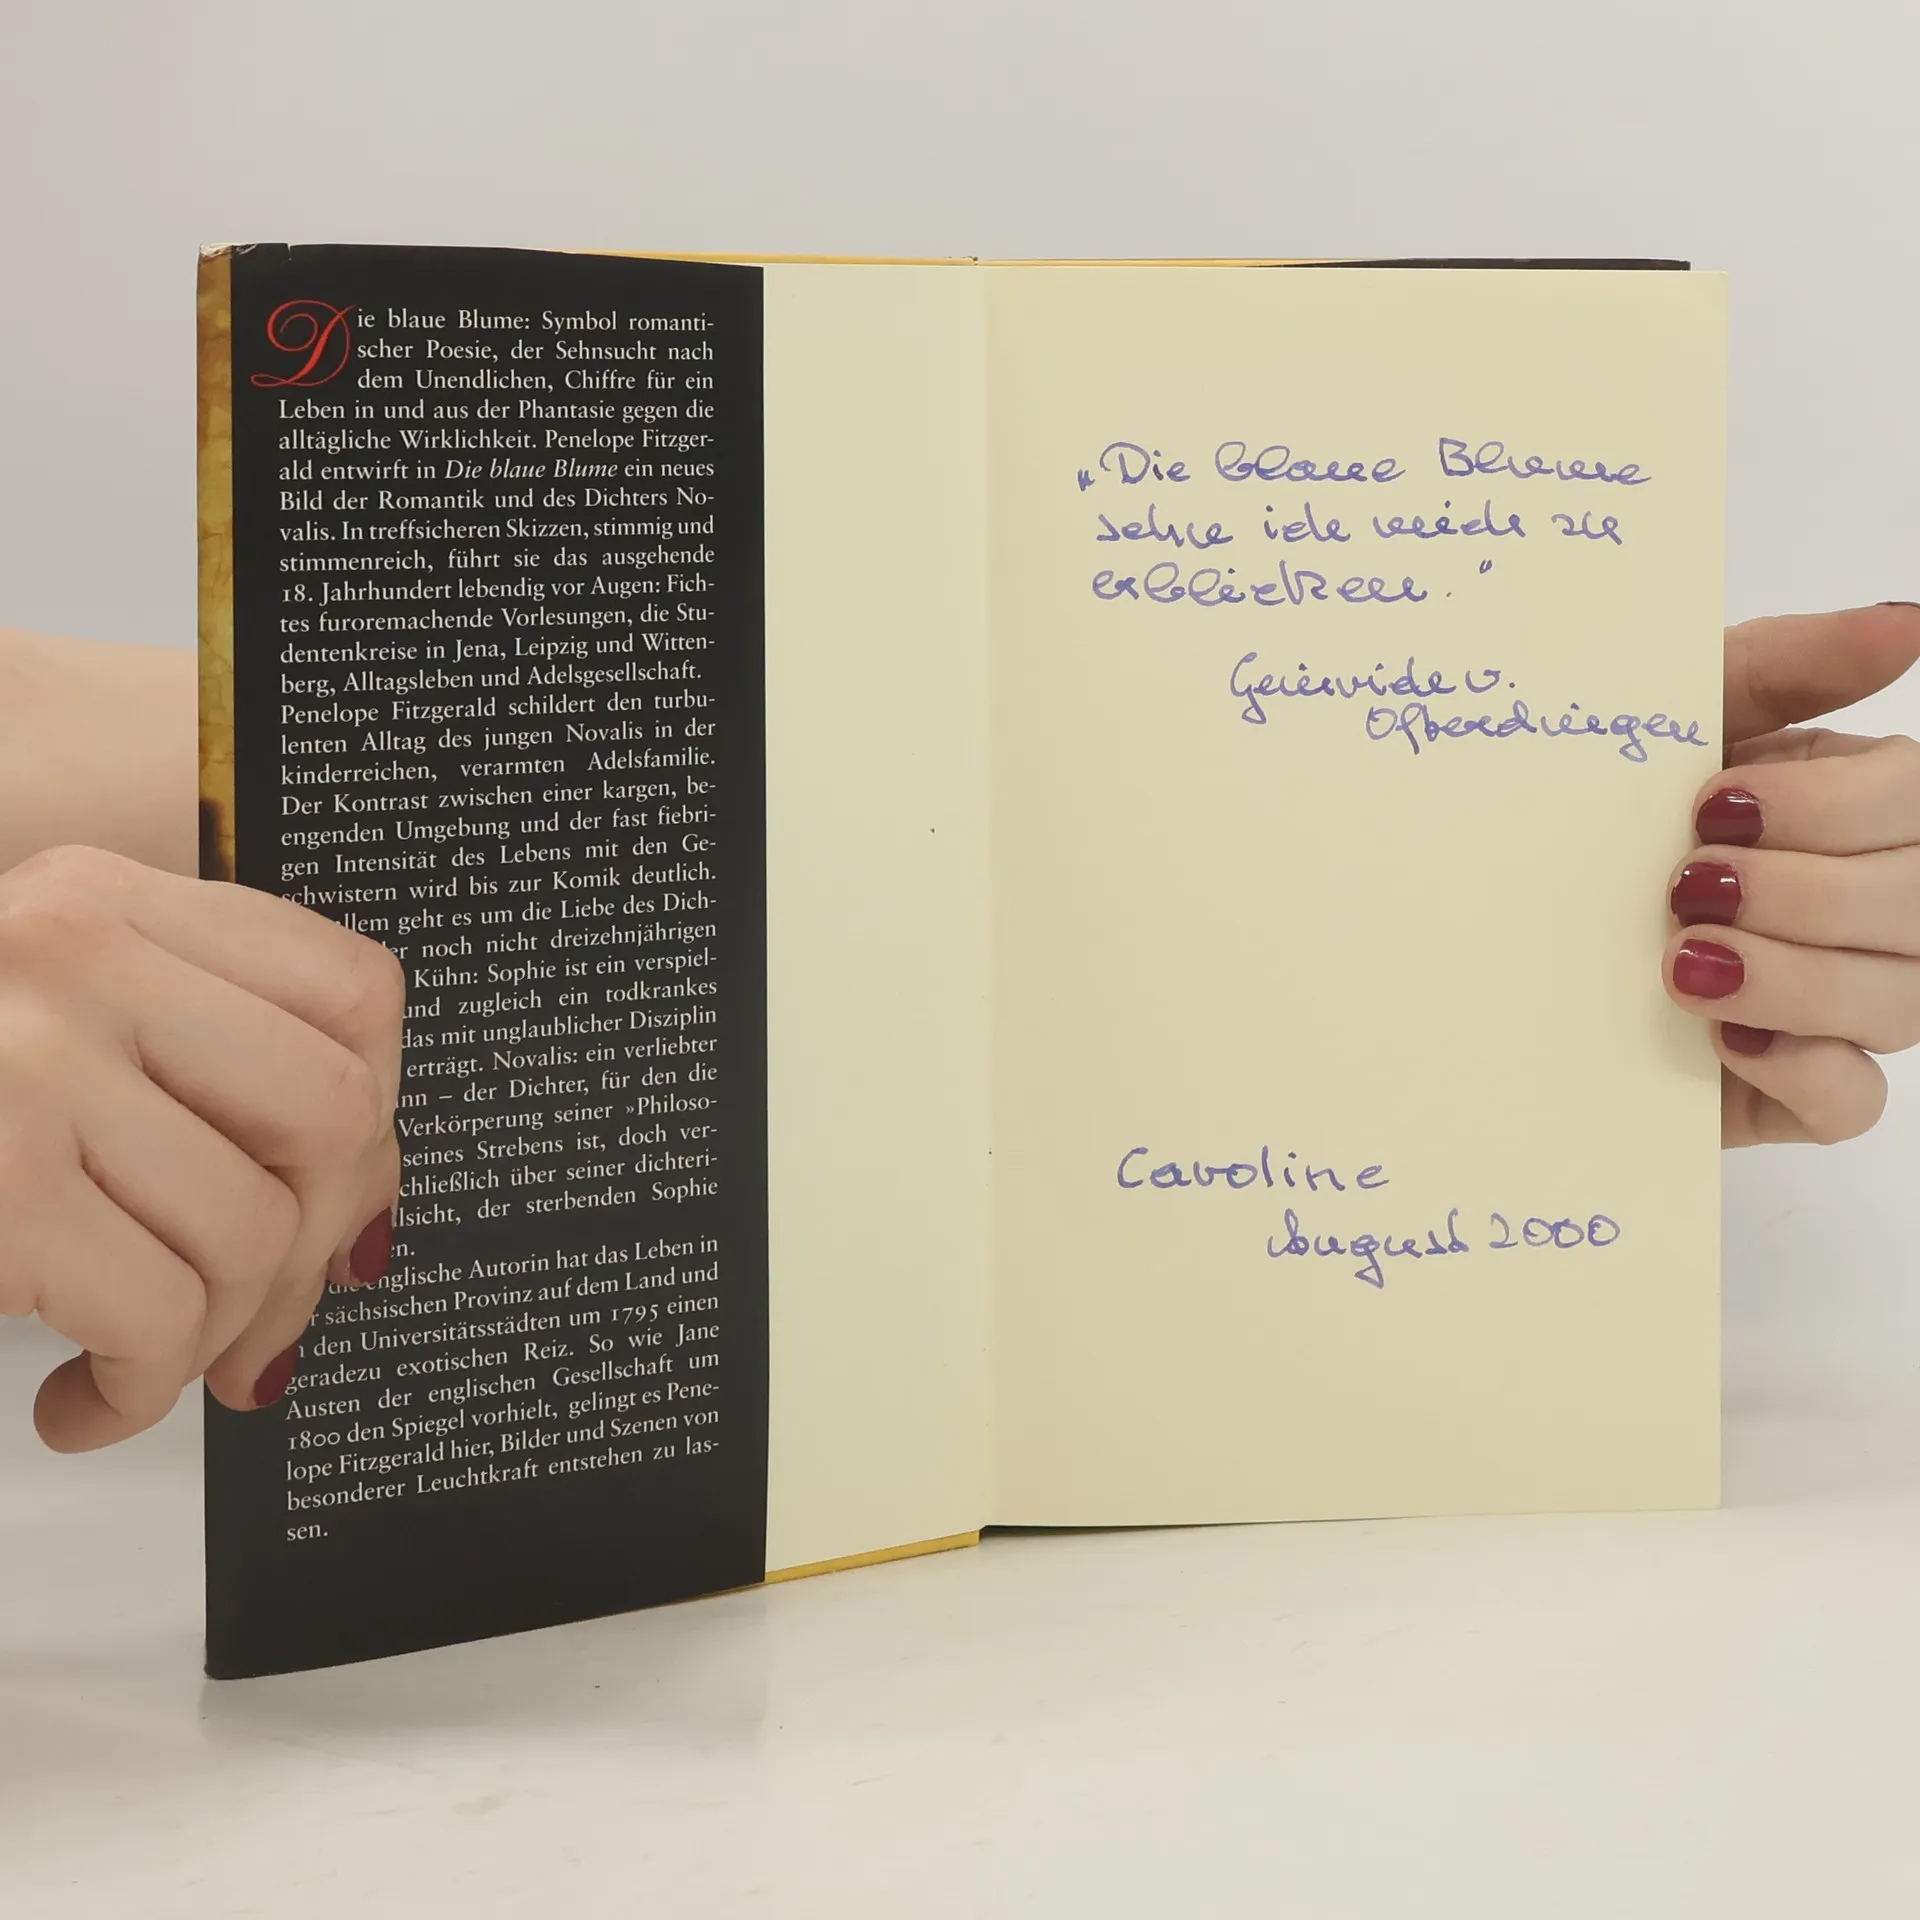 Die blaue Blume: Symbol romanti-
scher Poesie, der Sehnsucht nach
dem Unendlichen, Chiffre für ein
Leben in und aus der Phantasie gegen die
alltägliche Wirklichkeit. Penelope Fitzger-
ald entwirft in Die blaue Blume ein neues
Bild der Romantik und des Dichters No-
valis. In treffsicheren Skizzen, stimmig und
stimmenreich, führt sie das ausgehende
18. Jahrhundert lebendig vor Augen: Fich-
tes furoremachende Vorlesungen, die Stu-
dentenkreise in Jena, Leipzig und Witten-
berg, Alltagsleben und Adelsgesellschaft.
Penelope Fitzgerald schildert den turbu-
lenten Alltag des jungen Novalis in der
kinderreichen, verarmten Adelsfamilie.
Der Kontrast zwischen einer kargen, be-
engenden Umgebung und der fast fiebri-
gen Intensität des Lebens mit den Ge-
schwistern wird bis zur Komik deutlich.
llem geht es um die Liebe des Dich-
er noch nicht dreizehnjährigen
Kühn: Sophie ist ein verspiel-
und zugleich ein todkrankes
das mit unglaublicher Disziplin
erträgt. Novalis: ein verliebter
nn – der Dichter, für den die
Verkörperung seiner »Philoso-
seines Strebens ist, doch ver-
chließlich über seiner dichteri-
lsicht, der sterbenden Sophie
en.
die englische Autorin hat das Leben in
r sächsischen Provinz auf dem Land und
n den Universitätsstädten um 1795 einen
geradezu exotischen Reiz. So wie Jane
Austen der englischen Gesellschaft um
1800 den Spiegel vorhielt, gelingt es Pene-
lope Fitzgerald hier, Bilder und Szenen von
besonderer Leuchtkraft entstehen zu las-
sen.
„Die blaue Blume
sehne ich mich zu
erblicken."
Heinrich v.
Ofterdingen
Caroline
August 2000